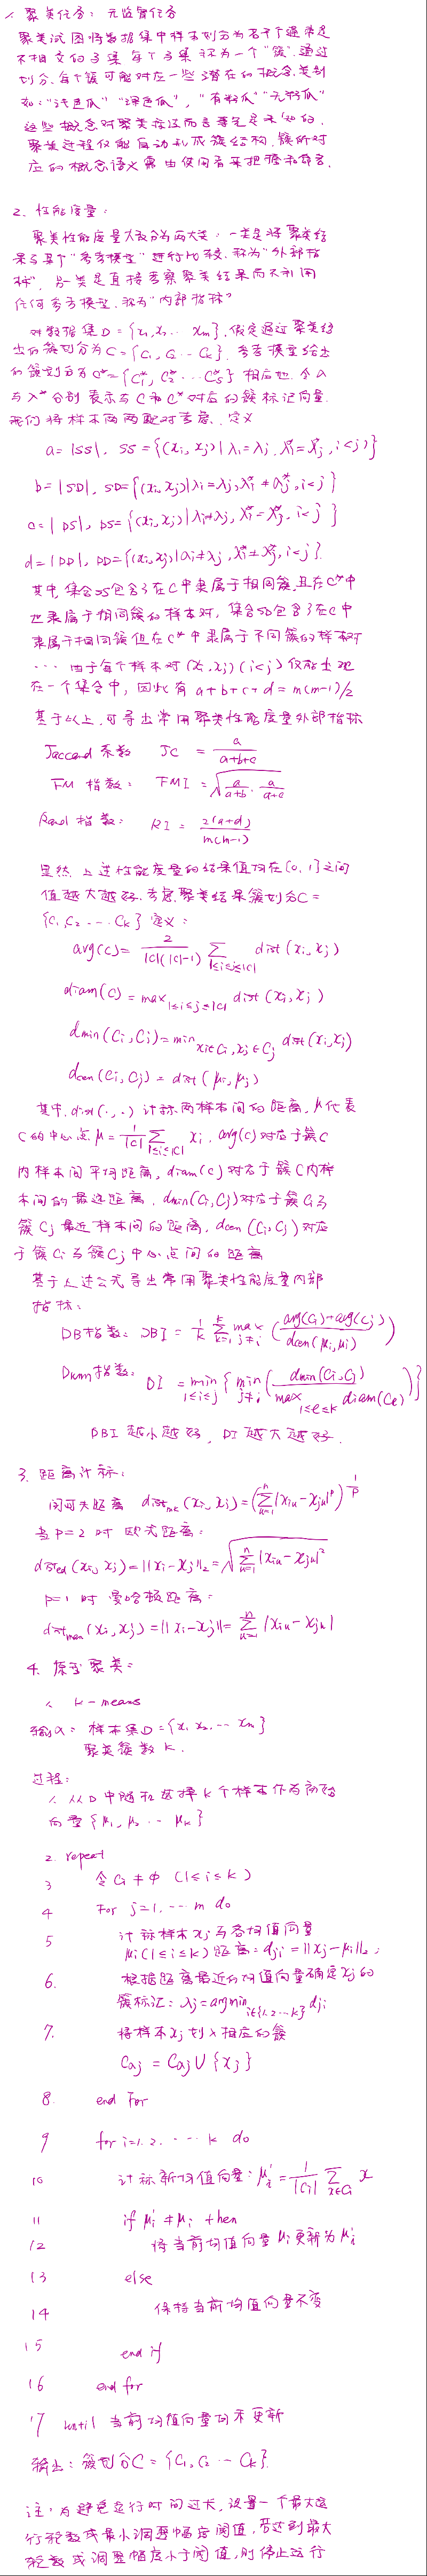 1. 聚类任务: 无监督任务
聚类试图将数据集中样本划分为若干个通常是
不相交的子集,每个子集称为一个"簇",通过
划分,每个簇可能对应一些潜在的概念,类别
如:"浅色瓜" "深色瓜", "有籽瓜" "无籽瓜"
这些概念对聚类算法而言事先是未知的,
聚类过程仅能自动形成簇结构,簇所对
应的概念语义需由使用者来把握和命名.
2. 性能度量:
聚类性能度量大致分为两大类: 一类是将聚类结
果与某个"参考模型"进行比较,称为"外部指
标", 另一类是直接考察聚类结果而不利用
任何参考模型,称为"内部指标"
对数据集D={x1,x2,… xm},假定通过聚类给
出的簇划分为C={C1, C2 … Ck}, 参考模型给出
的簇划分为C*={C1*, C2* … Cs*} 相应地,令λ
与λ*分别表示与C和C*对应的簇标记向量.
我们将样本两两配对考虑, 定义
a = |SS|, SS = {(xi, xj) | λi = λj, λi* = λj*, i<j)}
b = |SD|, SD = {(xi, xj) | λi = λj, λi* ≠ λj*, i<j}
c = | DS|, DS = {(xi, xj) | λi≠λj, λi* = λj*, i<j }
d = |DD|, DD = {(xi, xj) | λi ≠ λj, λi* ≠ λj*, i<j}.
其中,集合SS包含了在C中隶属于相同簇,且在C*中
也隶属于相同簇的样本对, 集合SD包含了在C中
隶属于相同簇但在C*中隶属于不同簇的样本对
… 由于每个样本对(xi, xj) (i<j) 仅能出现
在一个集合中, 因此有 a+b+c+d = m(m-1)/2
基于以上,可导出常用聚类性能度量外部指标
Jaccard 系数 JC = a/(a+b+c)
FM 指数: FMI = √(a/(a+b) · a/(a+c))
Rand 指数: RI = 2(a+d)/m(m-1)
显然,上述性能度量的结果值均在[0,1]之间
值越大越好. 考虑聚类结果簇划分C=
{C1, C2 … Ck} 定义:
avg(C) = 2/(|C|(|C|-1)) ∑1≤i≤j≤|C| dist(xi, xj)
diam(C) = max1≤i≤j≤|C| dist(xi, xj)
dmin(Ci, Cj) = min xi∈Ci, xj∈Cj dist(xi, xj)
dcen(Ci, Cj) = dist(μi, μj)
其中, dist(·,·) 计标两样本间的距离, μ代表
C的中心点 μ = 1/|C| ∑1≤i≤|C| xi, avg(C) 对应于簇C
内样本间平均距离, diam(C) 对应于簇C内样
本间的最远距离, dmin(Ci, Cj) 对应于簇Ci与
簇Cj 最近样本间的距离, dcen (Ci, Cj) 对应
于簇Ci与簇Cj 中心点间的距离
基于上述公式导出常用聚类性能度量内部
指标:
DB指数: DBI = 1/k ∑ max j≠i (avg(Ci)+avg(Cj)/dcen(μi, μj))
Dunn指数: DI = min 1≤i≤j { min j≠i ( dmin(Ci, Cj) / max 1≤l≤k diam(Cl) )}
DBI 越小越好, DI 越大越好.
3. 距离计标:
闵可夫距离 distmk (xi, xj) = (∑|xiu - xju|^p)^1/p
当 p=2 时 欧式距离:
disted (xi, xj) = ||xi - xj||2 = √∑|xiu - xju|²
p=1 时 曼哈顿距离:
distman (xi, xj) = || xi - xj || = ∑ |xiu - xju|
4. 原型聚类:
1. k-means
输入: 样本集D={x1 x2 … xm}
聚类簇数 k.
过程:
1. 从D中随机选择k个样本作为初始
向量{μ1, μ2 … μk}
2. repeat
3 令Ci = φ (1≤i≤k)
4 For j=1, … m do
5 计标样本xj与各均值向量
μi(1≤i≤k) 距离: dji = ||xj - μi||2;
6. 根据距离最近的均值向量确定xj的
簇标记: λj = argmin i∈{1,2…k} dji
7. 将样本xj划入相应的簇
Cλj = Cλj ∪ {xj}
8. end For
9 for i=1, 2, … k do
10 计标新均值向量: μi' = 1/|Ci| ∑x∈Ci x
11 if μi' ≠ μi then
12 将当前均值向量μi更新为μi'
13 else
14 保持当前均值向量不变
15 end if
16 end for
17 until 当前均值向量均未更新
输出: 簇划分C={C1, C2 … Ck}.
注: 为避免运行时间过长, 设置一个最大运
行轮数或最小调整幅度阈值, 若达到最大
轮数或调整幅度小于阈值, 则停止运行